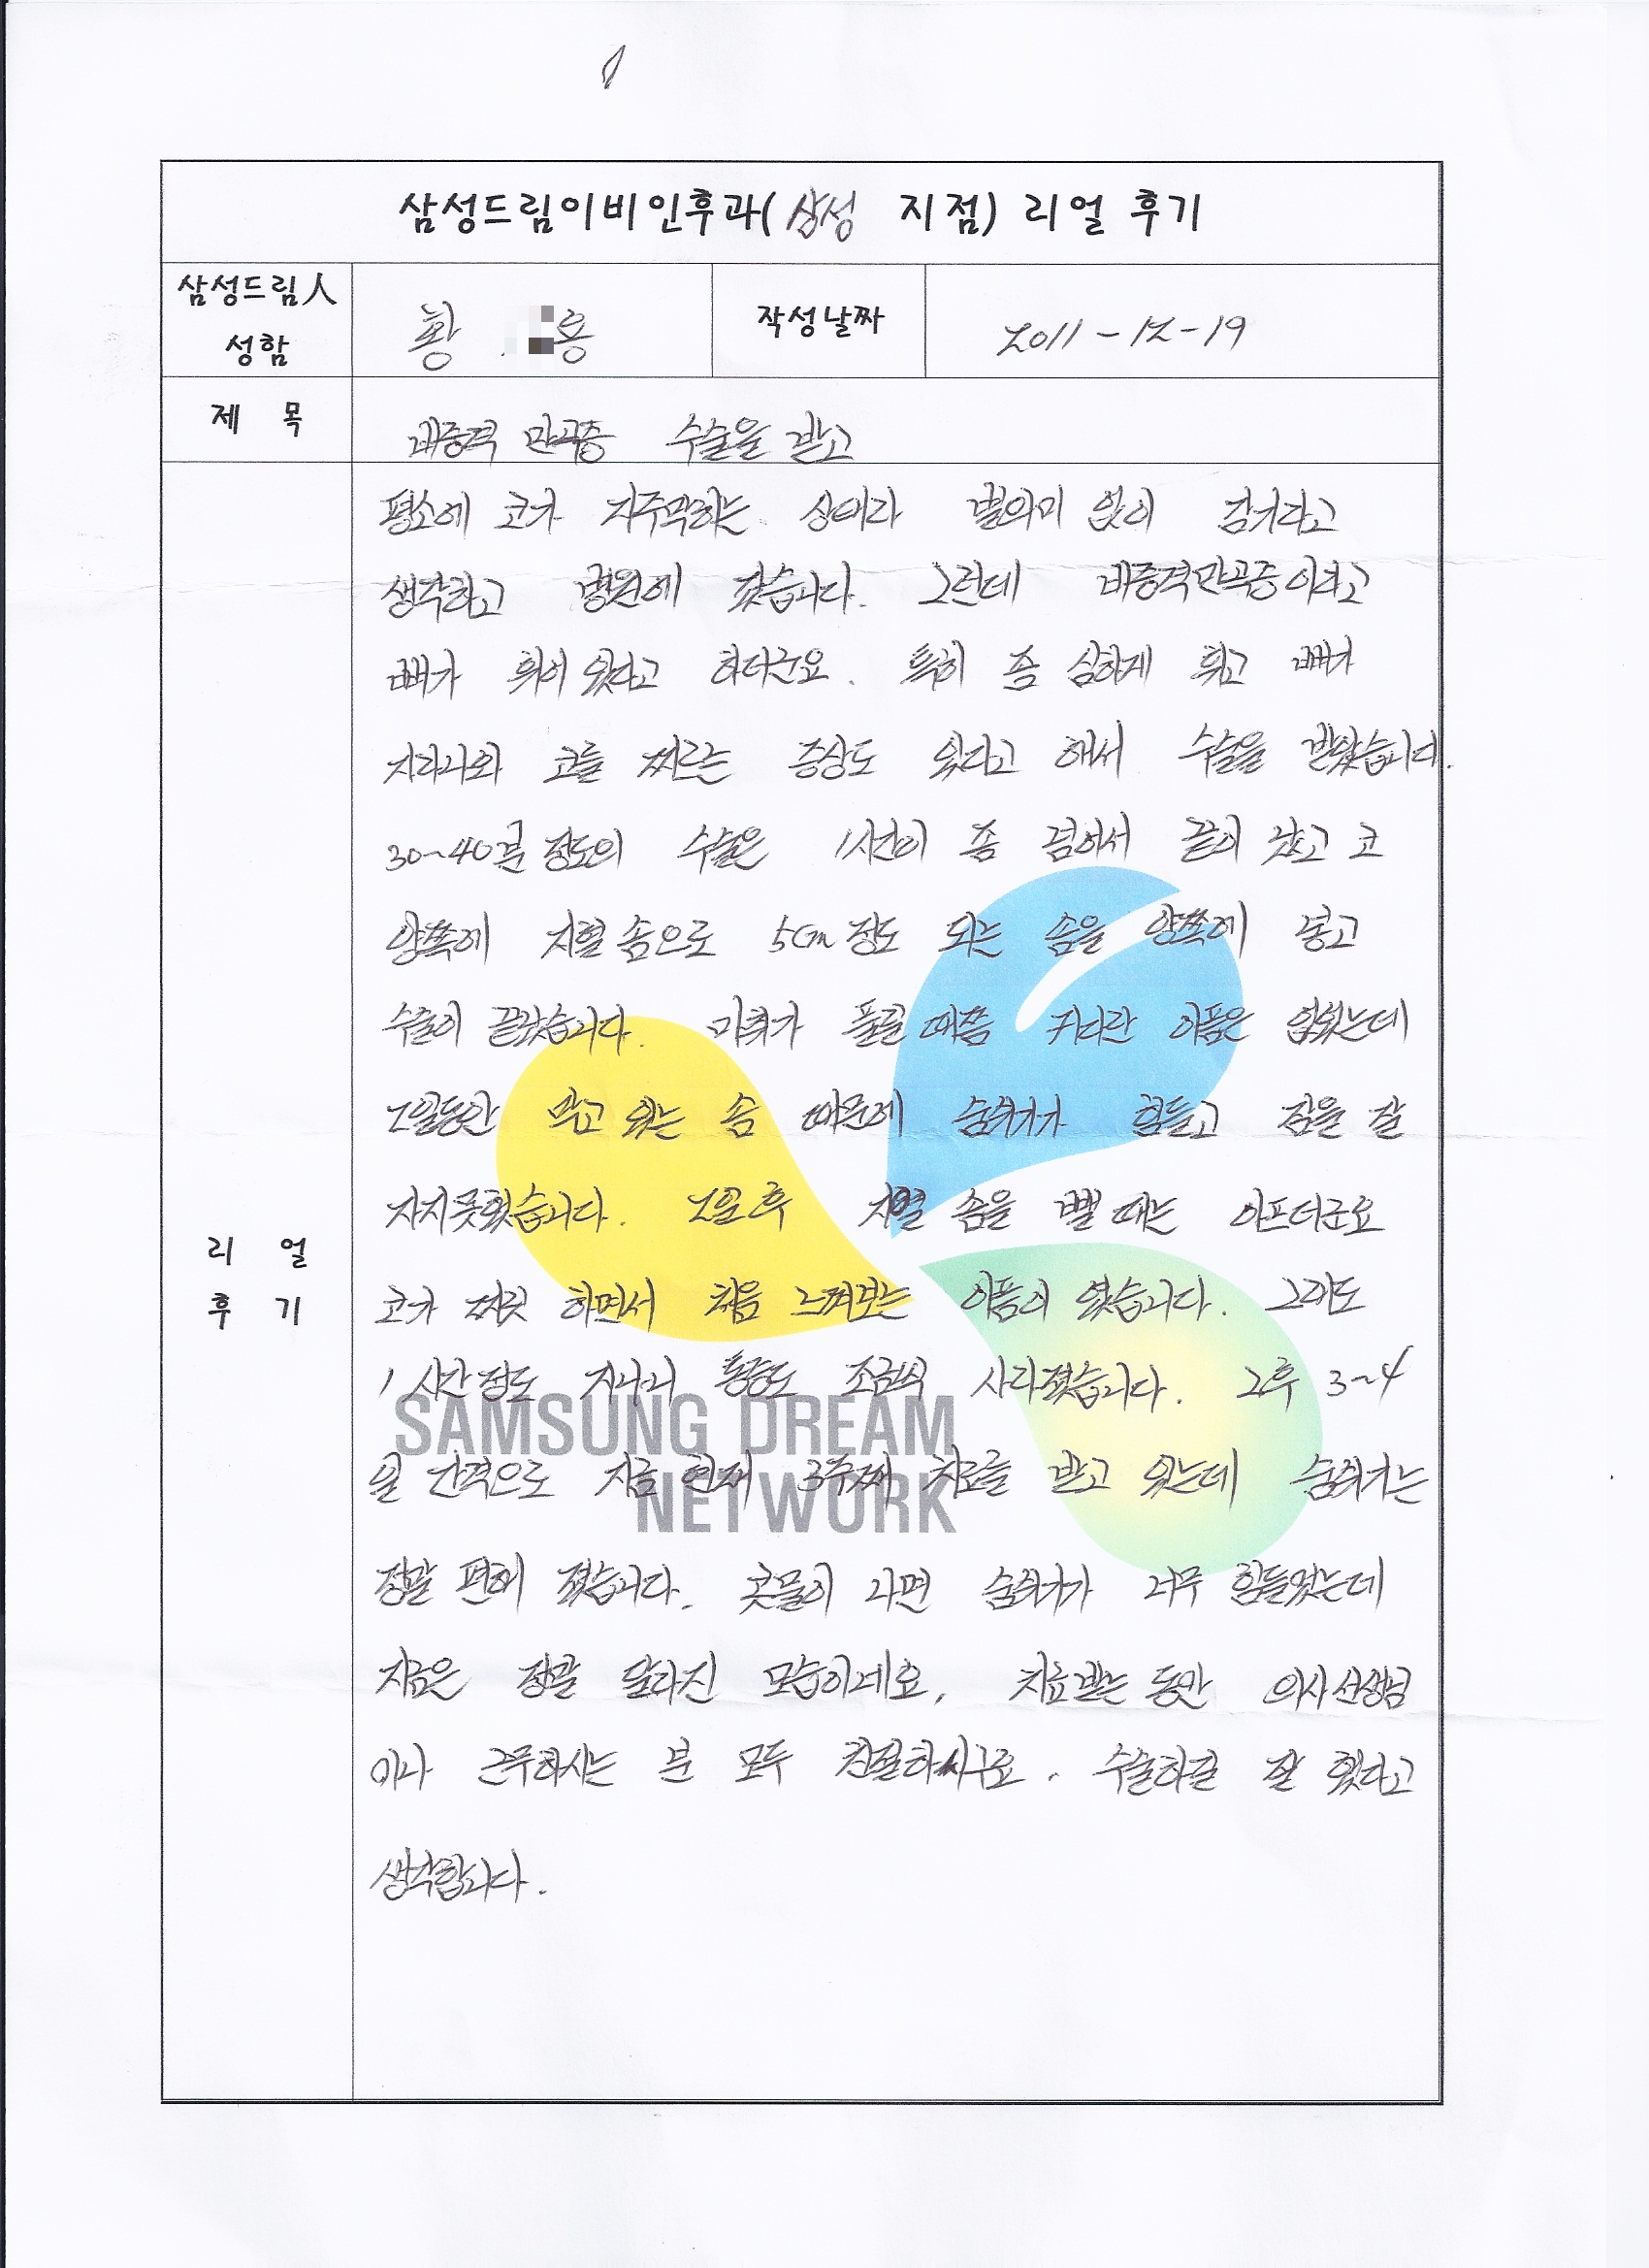 삼성드림이비인후과(삼성 지점) 리얼 후기
삼성드림人
성함
황 용
작성날짜
2011-12-19
제 목
비중격 만곡증 수술을 받고
리 얼
후 기
평소에 코가 자주막히는 상이라 별의미 없이 감기라고
생각하고 병원에 갔습니다. 그런데 비중격만곡증이라고
뼈가 휘어 있다고 하더군요. 특히 좀 심하게 휘고 뼈가
자라나와 코를 찌르는 증상도 있다고 해서 수술을 받았습니다.
30~40분 정도의 수술은 1시간이 좀 넘어서 끝이 났고 코
양쪽에 지혈 솜으로 5cm 정도 되는 솜을 양쪽에 넣고
수술이 끝났습니다. 마취가 풀릴 때쯤 커다란 아픔은 없었는데
2일동안 막고 있는 솜 때문에 숨쉬기가 힘들고 잠을 잘
자지못했습니다. 2일 후 지혈 솜을 뺄 때는 아프더군요
코가 찌릿 하면서 처음 느껴보는 아픔이 였습니다. 그래도
1시간 정도 지나니 통증도 조금씩 사라졌습니다. 그후 3~4
일 간격으로 지금 현재 3주째 치료를 받고 있는데 숨쉬기는
정말 편해 졌습니다. 콧물이 나면 숨쉬기가 너무 힘들었는데
지금은 정말 달라진 모습이네요. 치료받는 동안 의사선생님
이나 근무하시는 분 모두 친절하시구요. 수술하길 잘 했다고
생각합니다.
SAMSUNG DREAM
NETWORK